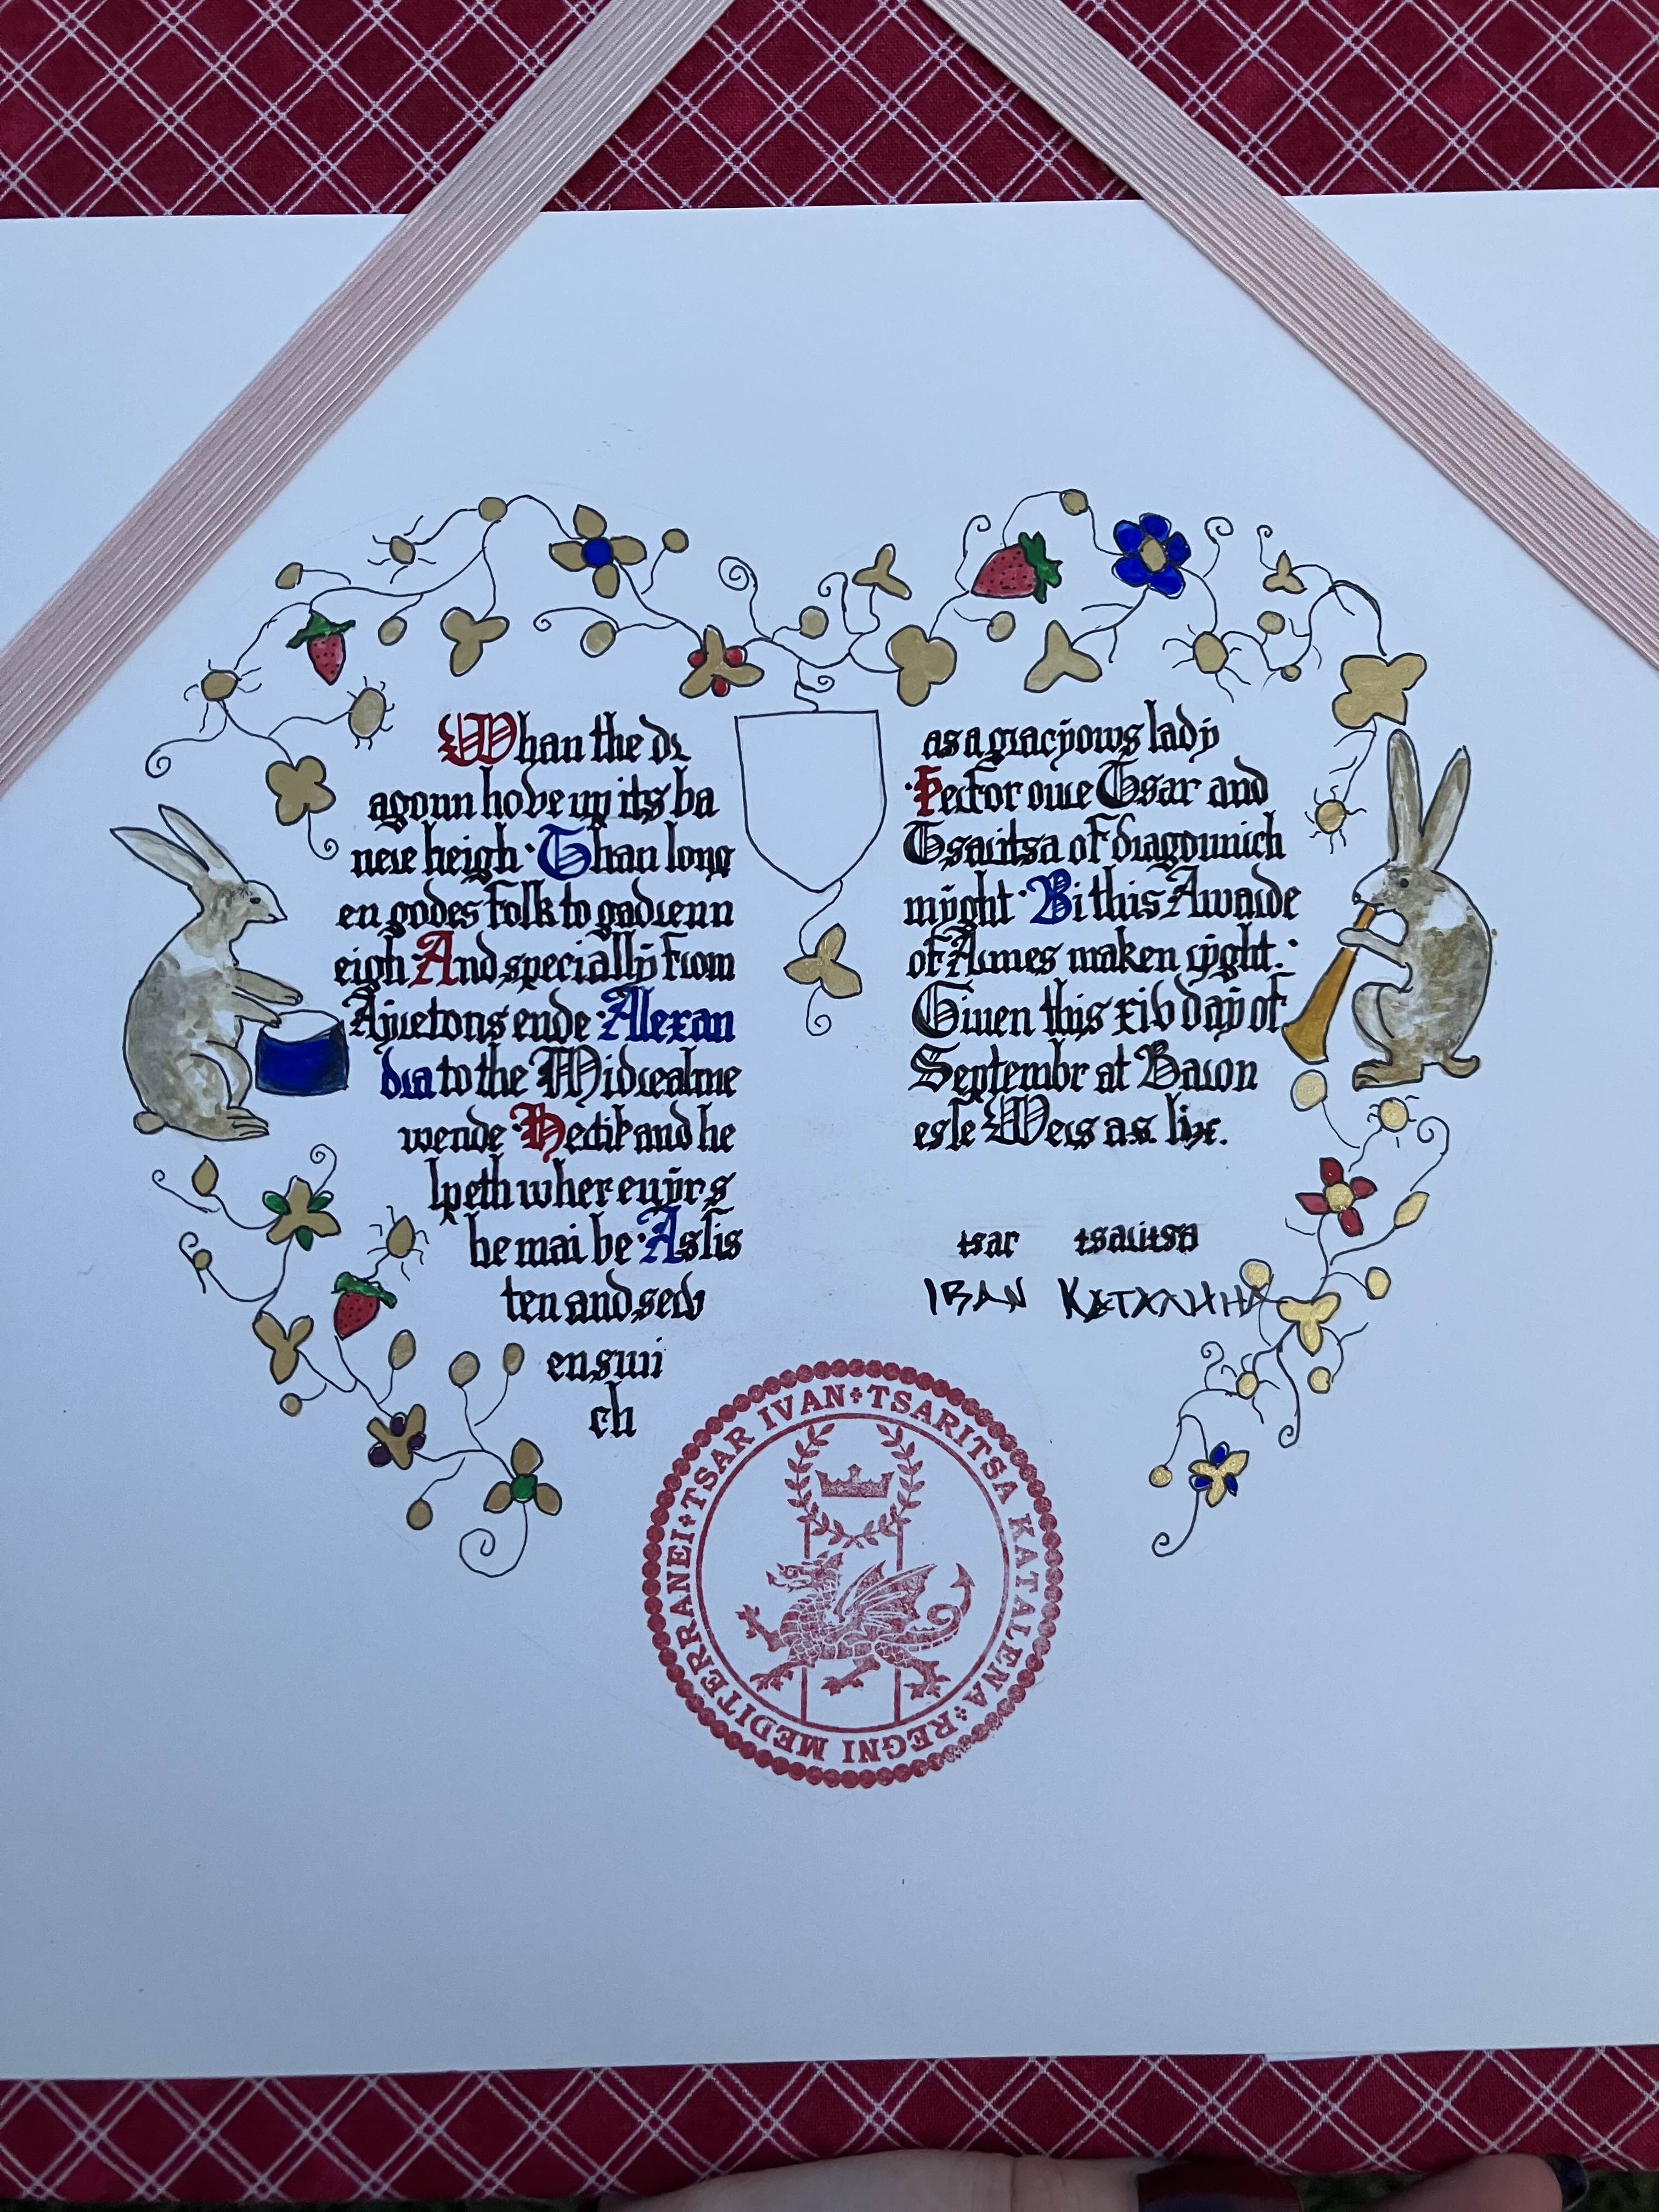 Whan the dr
agonn hove up its ba
nere heigh · Than long
en godes folk to gadrenn
eigh · And specially from
Ayretons ende · Alexan
dra to the Midrealme
wende · Hectik and he
lpeth wher evyr s
he mai be · As lis
ten and serv
en swi
ch
as a gracyows lady
· Perfor owre Tsar and
Tsaritsa of dragoun rich
myght · Bi this Awarde
of Armes maken ryght :·
Given this xiv day of
Septembr at Baron
esse Wers a.s. lix.
tsar tsaritsa
IBAN
TSAR IVAN TSARITSA KATALENA REGNI MEDITERRANEI